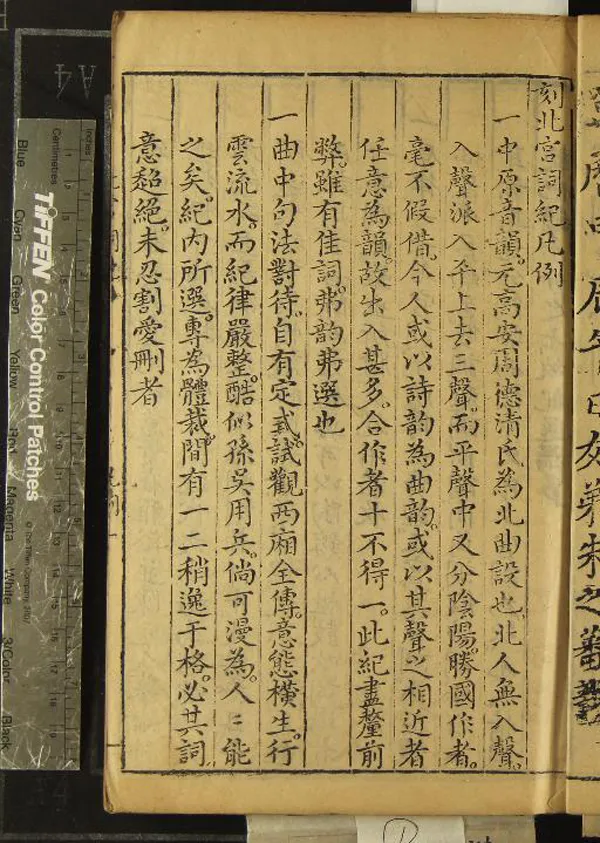 刻北宮詞紀凡例
一中原音韻。元高安周德清氏為北曲設也。北人無入聲。
入聲派入平上去三聲。而平聲中又分陰陽。勝國作者。
毫不假借。今人或以詩韵為曲韵。或以其聲之相近者
任意為韻。故出入甚多。合作者十不得一。此紀盡釐前
弊。雖有佳詞。弗韵弗選也
一曲中句法對待。自有定式。試觀西廂全傳。意態橫生。行
雲流水。而紀律嚴整。酷似孫吳用兵。倘可漫為。人〻能
之矣。紀內所選。專為體裁。間有一二稍逸于格。必其詞
意超絕。未忍割愛刪者
Inches
Centimetres
TIFFEN Color Control Patches
© The Tiffen Company, 2007
Blue
Cyan
Green
Yellow
Red
Magenta
White
3/Color
Black
A4